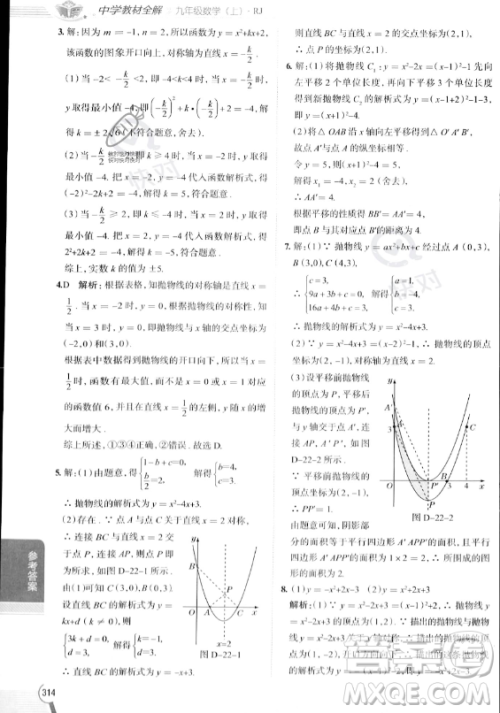 中学教材全解 九年级数学（上）·RJ
3.解:因为m=1,n=-2,所以函数为y=x²+kx-4,
该函数的图象开口向上,对称轴为直线x=
-k/2.
(1)当-2<-k/2<2,即-4<k<4时,x=-k/2时,
y取得最小值-4,即(-k/2)²+k·(-k/2)-4=-4,解
(2)当-k/2≤-2,即k≥4时,当x=-2时,y取得
最小值-4.把x=-2,y=-4代入函数解析式得
(-2)²-2k-4=-4,解得k=2(不符合题意,舍去).
最小值-4.把x=2,y=-4代入函数解析式得
综上,实数k的值为
4.D 解析:根据表格,知抛物线的对称轴是直线x=
1/2.当x=-2时,y=0,根据抛物线的对称性,当
x=3时,y=0,即抛物线与x轴的交点坐标为
(-2,0)和(3,0).
根据表中数据得到抛物线的开口向下,所以当x=
1/2时,函数有最大值,而不是x=0或x=1对应
的函数值6,并且在直线x=1/2的左侧,y随x的增
大而增大.
综上所述,①③④正确,②错误.故选D.
5.解:(1)由题意,得{1-b+c=0, b/2=2, 解得{b=4, c=3,
∴ 抛物线的解析式为y=x²-4x+3.
(2)存在.∵ 点A与点C关于直线x=2对称,
∴ 连接BC与直线x=2
交于点P,则点P即为所
求.如图D-22-1.
由(1)可知B(0,3),C(3,0).
设直线BC的解析式为
y=kx+d,
则{3k+d=0, d=3, 解得{k=-1, d=3,
图D-22-1
∴ 直线BC的解析式为y=-x+3.
当x=2时,y=-2+3=1,
∴ 点P的坐标为(2,1).
6.解:(1)将抛物线C₁:y=x²-2x=(x-1)²-1先向
左平移2个单位长度,再向下平移3个单位长度
得到新抛物线C₂的解析式为y=(x-1+2)²-1-
3,即y=(x+1)²-4.
(2)将△OAB沿x轴向右平移得到△O′A′B′,
故点A′与点A的纵坐标相等.
令y=5,则(x+1)²-4=5,
解得x₁=-4,x₂=2(舍去),
∴ AA′=4.
根据平移的性质得BB′=AA′=4,
即点B与其对应点B′的距离为4.
7.解:(1)∵ 抛物线y=ax²+bx+c经过点A(0,3),
B(3,0),C(4,3),
∴ {c=3, 9a+3b+c=0, 16a+4b+c=3, 解得{a=1, b=-4, c=3,
∴ 抛物线的解析式为y=x²-4x+3.
(2)∵ y=x²-4x+3=(x-2)²-1,
∴ 抛物线的顶点坐标为(2,-1),对称轴为直线x=2.
(3)设平移前抛物线
的顶点为P,平移后
抛物线的顶点为P′,
与y轴交于点A′,连
接AP,A′P′,如图
D-22-2.
∵ 平移前抛物线的
顶点坐标为(2,-1),
∴ PP′=1.
图D-22-2
由题意可知,阴影部
分的面积等于平行四边形A′APP′的面积,而平行
四边形A′APP′的面积为1×2=2,∴ 所围成的图
形的面积为2.
8.(1)y=-x²+2x-3 (2)y=-x²-2x+3
参考答案
314